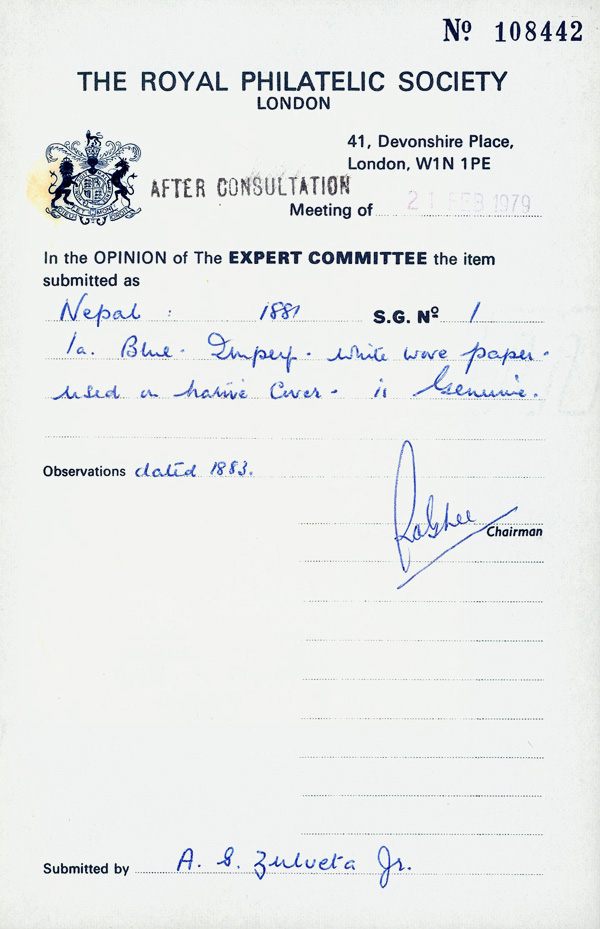 Nº 108442
THE ROYAL PHILATELIC SOCIETY
LONDON
41, Devonshire Place,
London, W1N 1PE
AFTER CONSULTATION
Meeting of 21 FEB 1979
In the OPINION of The EXPERT COMMITTEE the item
submitted as
Nepal : 1881 S.G. Nº 1
1a. Blue. Imperf. white wove paper.
used on native Cover. is Genuine.
Observations dated 1883.
Chairman
Submitted by A. S. Zulueta Jr.